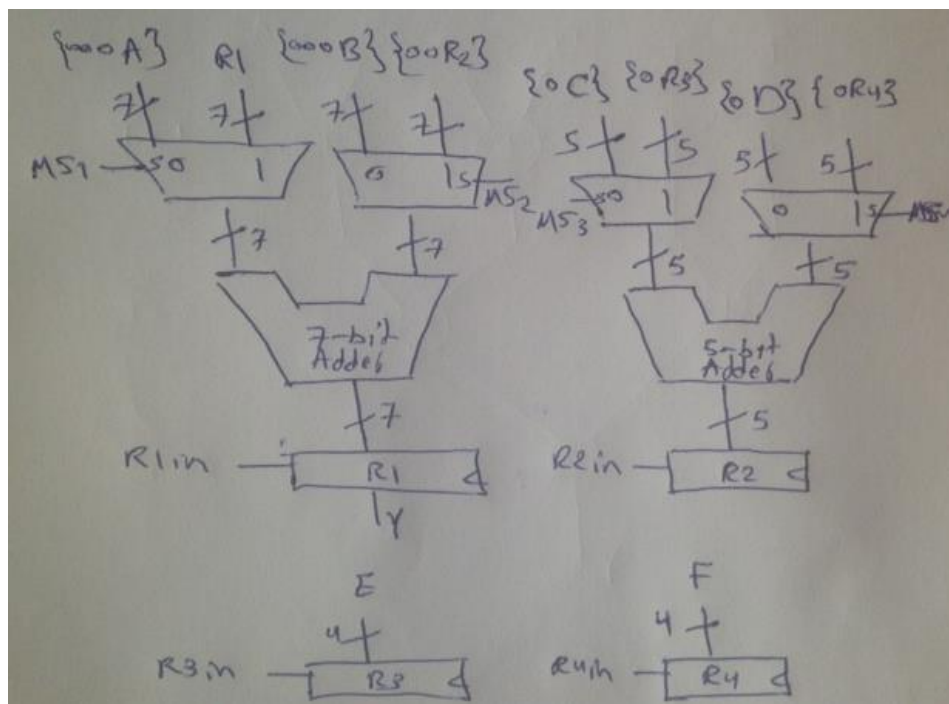 {000A} R1 {000B} {00R2}
{0C} {0R3} {0D} {0R4}
7 7 7 7
5 5 5 5
MS1 S0 1 0 1S MS2
MS3 S0 1 0 1S
7 7
5 5
7-bit
Adder
5-bit
Adder
7 5
R1in R1 R2in R2
Y
E F
4 4
R3in R3 R4in R4